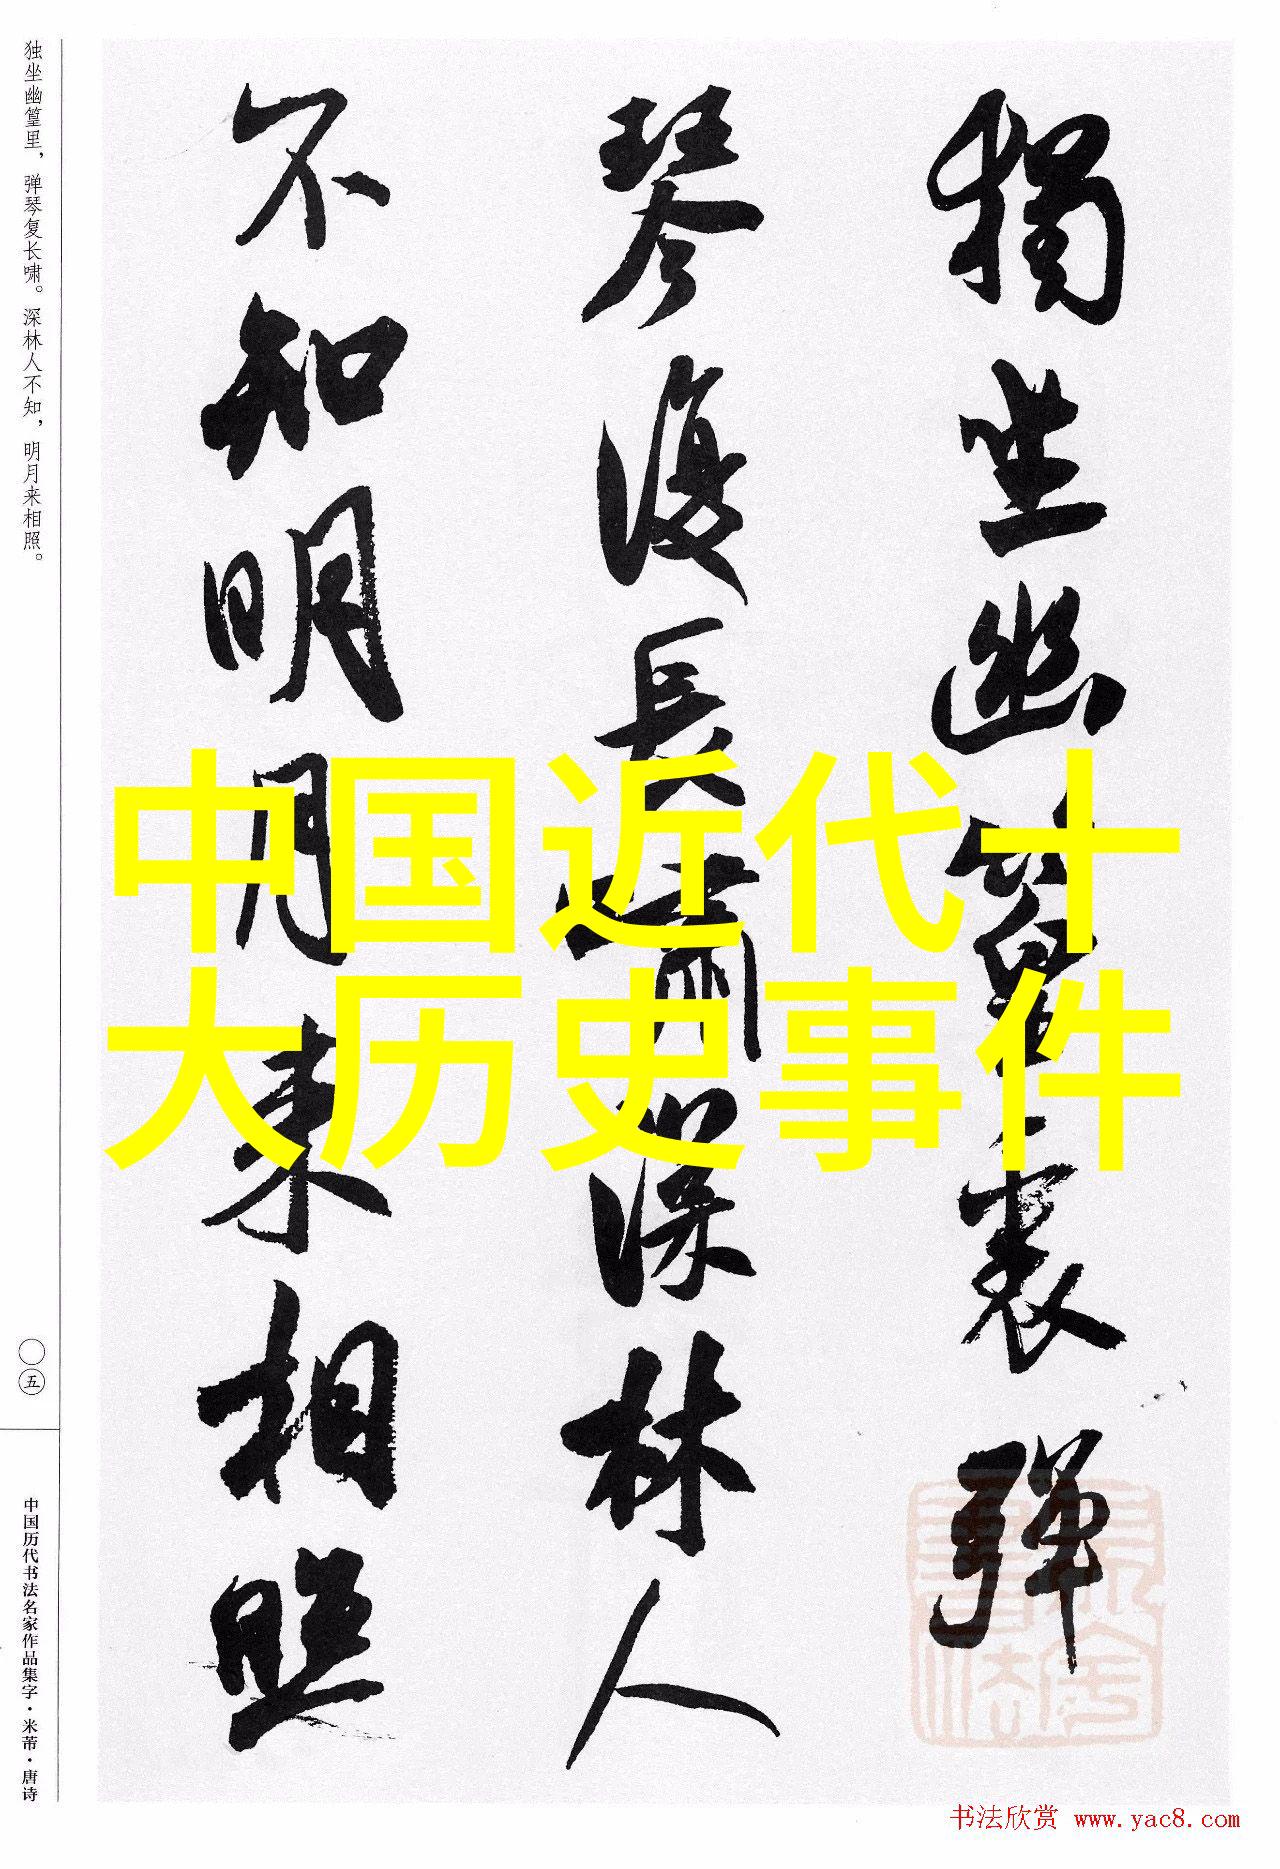 獨坐幽篁裏彈
琴復長嘯深林人
不知明月來相照
中国近代十
大历史事件
独坐幽篁里，弹琴复长啸。深林人不知，明月来相照。
〇五
中国历代书法名家作品集字·米芾·唐诗
书法欣赏 www.yac8.com